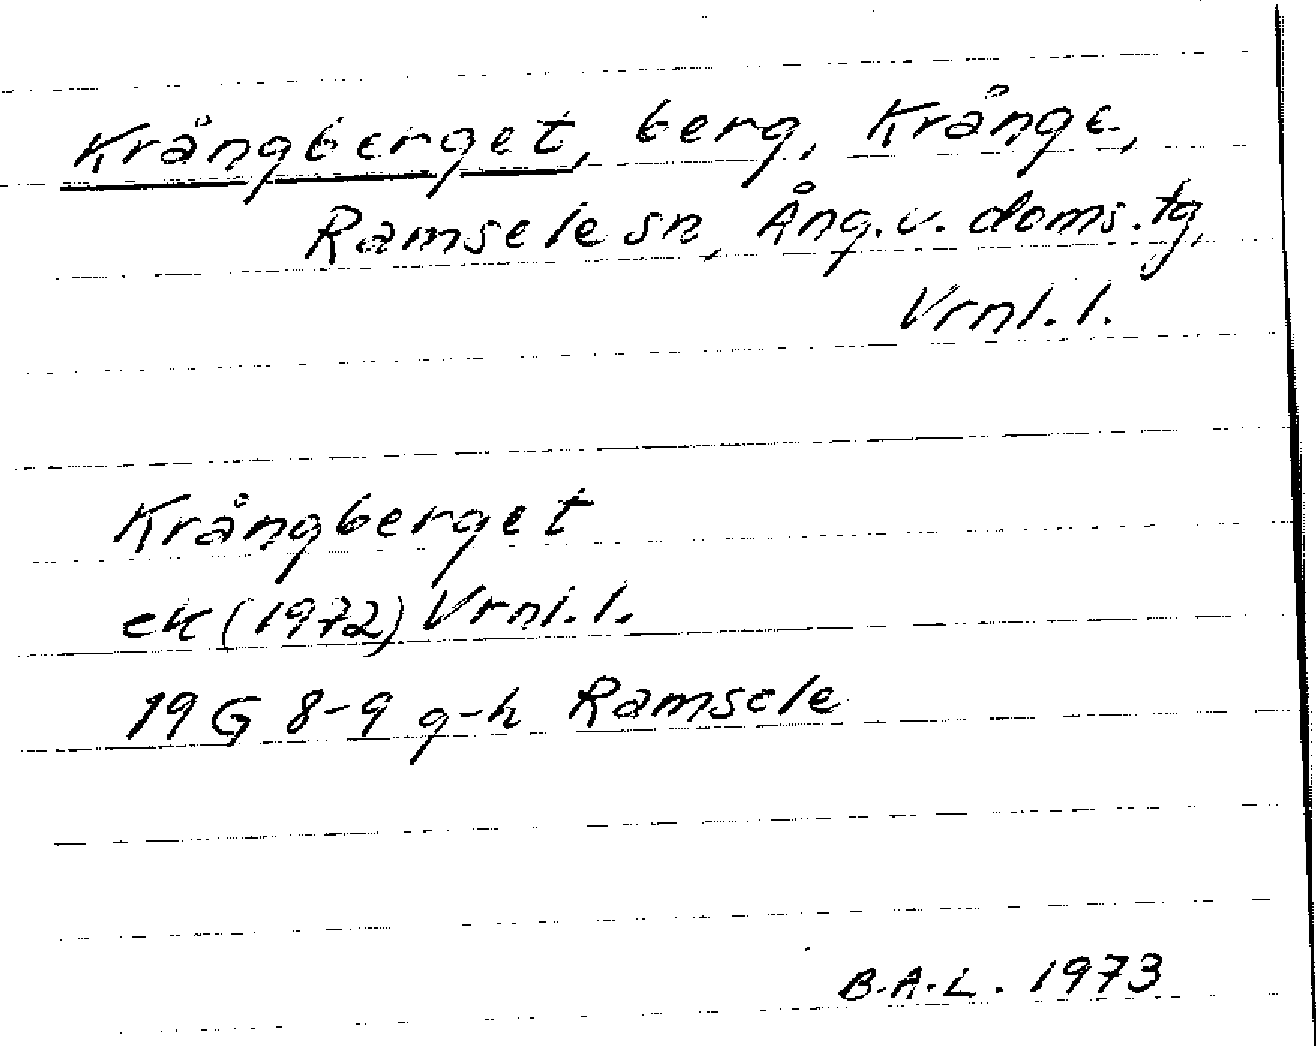 Krångberget, berg, Krånge,
Ramsele sn, Ång.v. doms.tg,
Vrnl.l.
Krångberget
ek (1972) Vrnl.l.
19G 8-9 g-h Ramsele
B.A.L. 1973